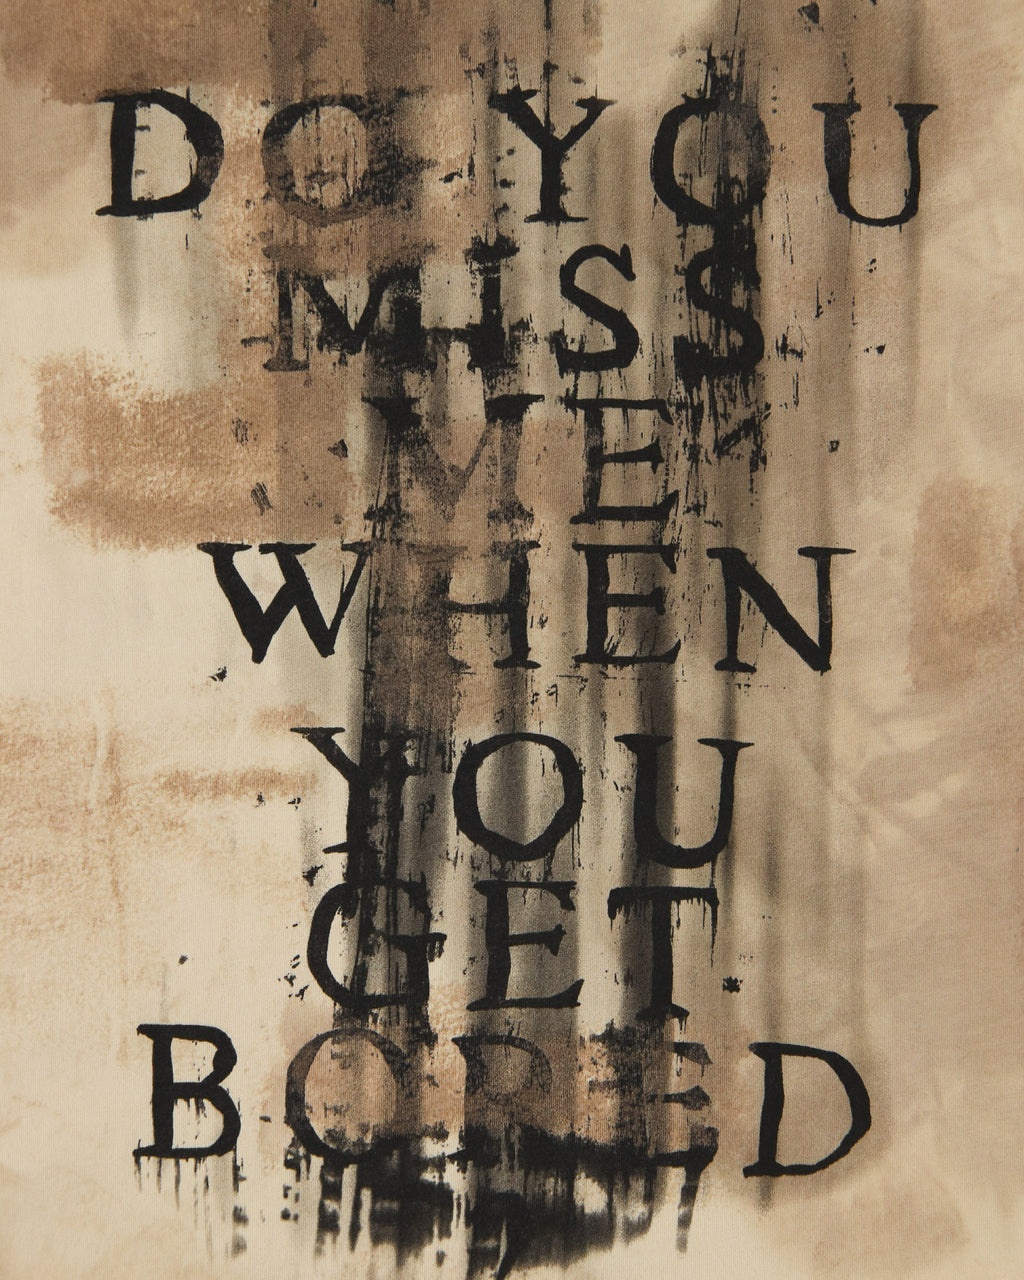 DO YOU
MISS
ME
WHEN
YOU
GET
BORED